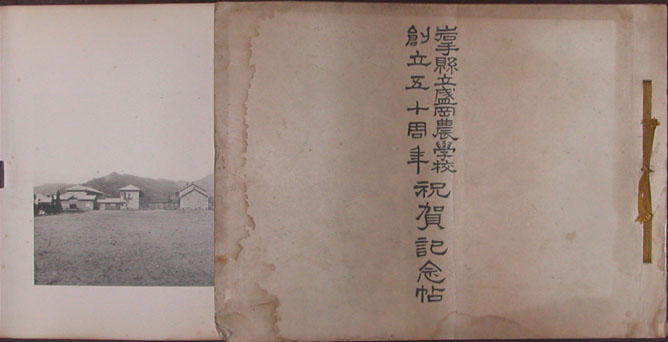 岩手縣立盛岡農学校
創立五十周年
祝賀記念帖